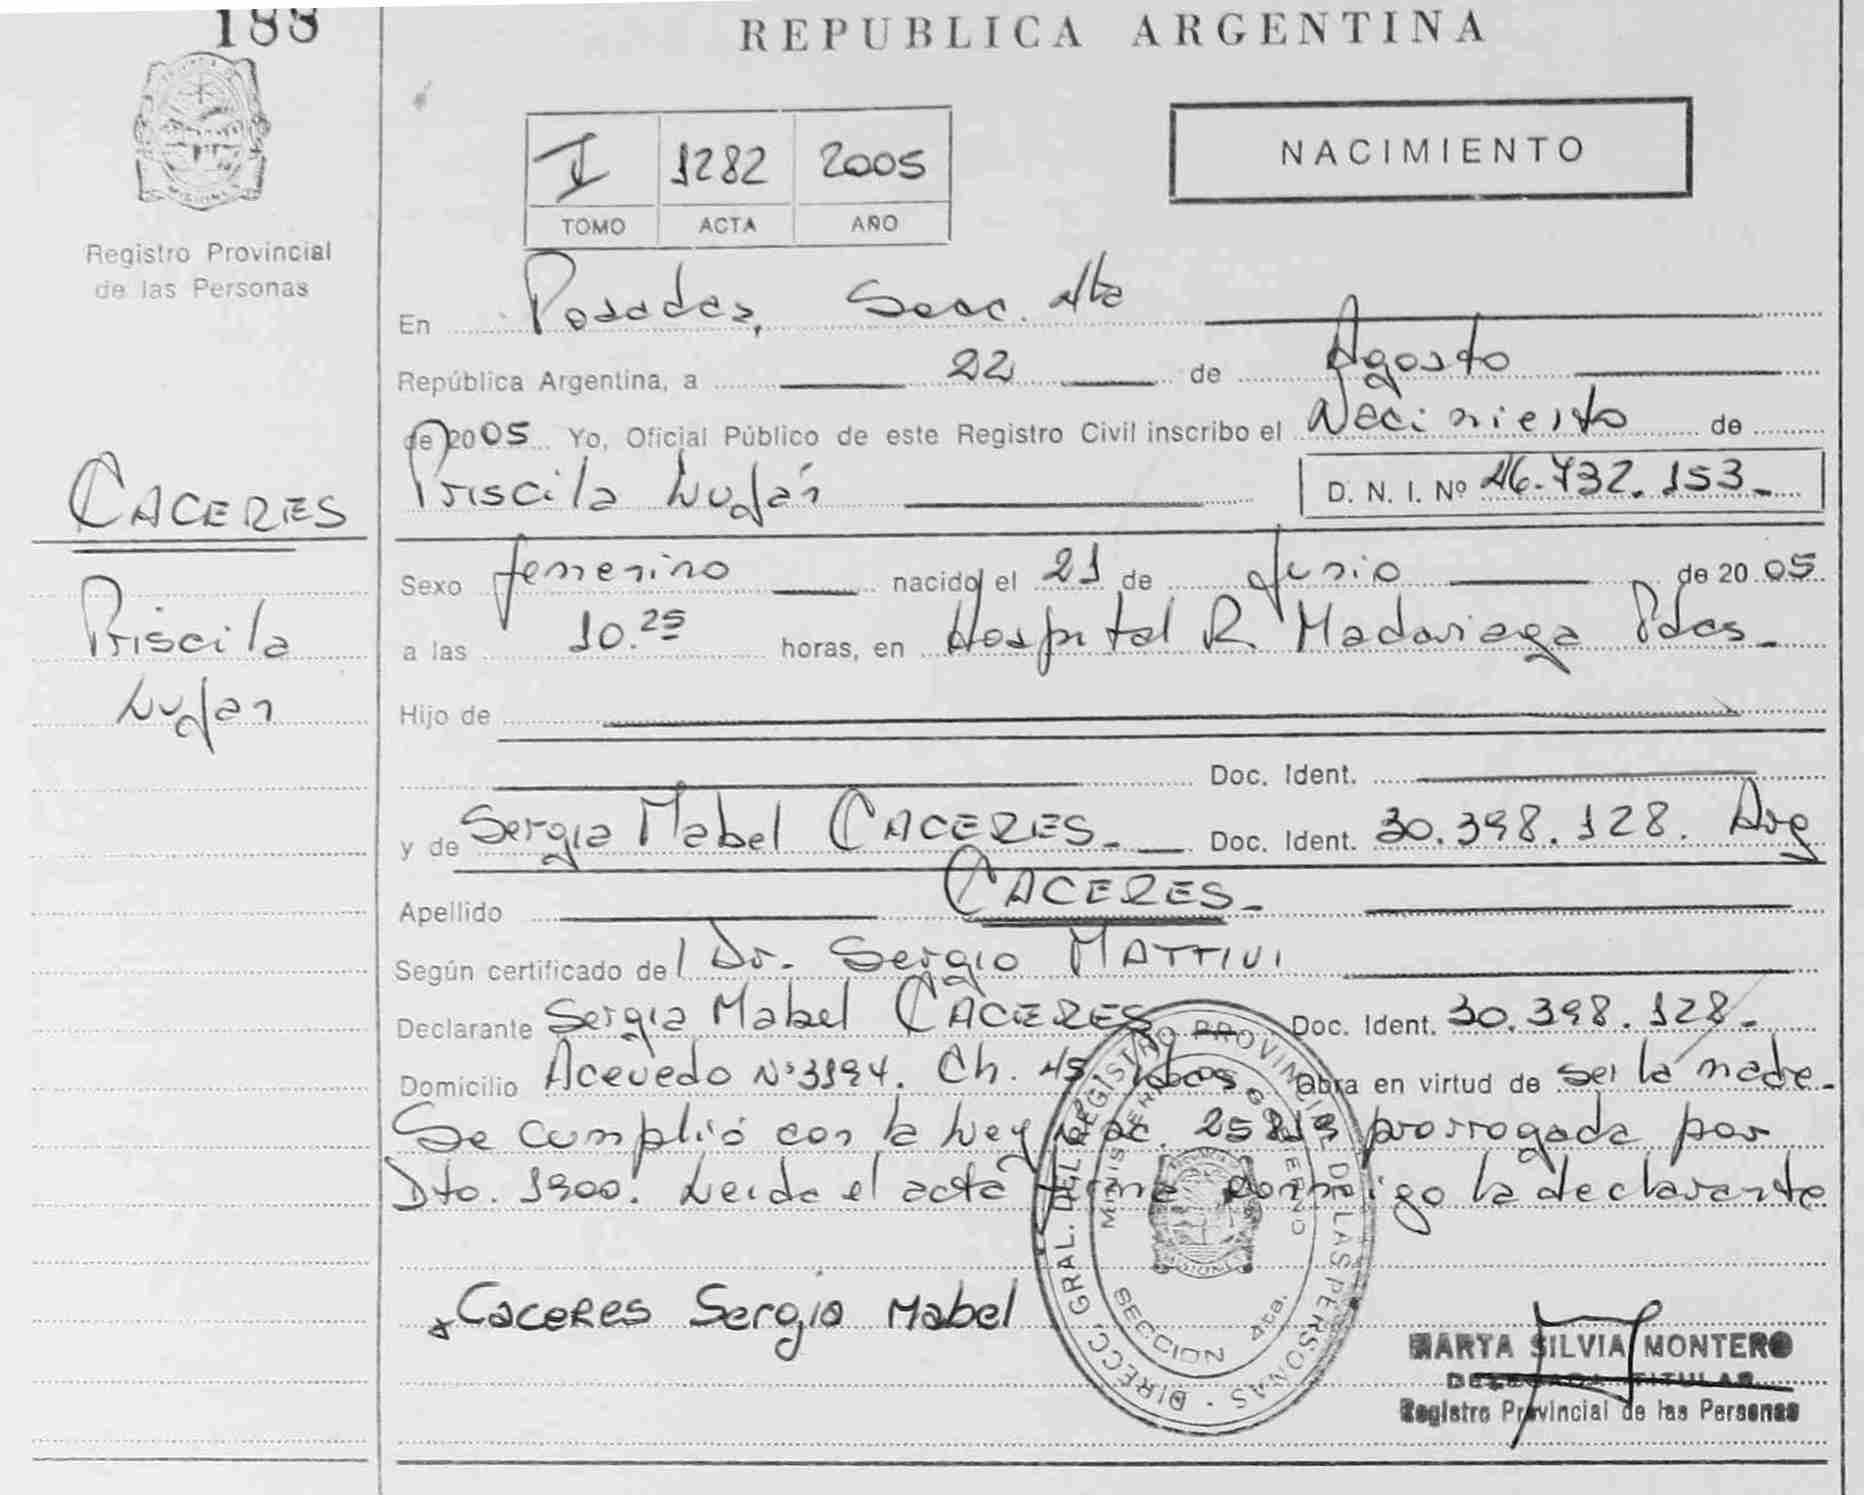 188
REPUBLICA ARGENTINA
NACIMIENTO
I 1282 2005
TOMO ACTA AÑO
Registro Provincial
de las Personas
CACERES
Priscila
Luján
En Posadas, Secc. 4ta
República Argentina, a 22 de Agosto
de 2005 Yo, Oficial Público de este Registro Civil inscribo el Nacimiento de
Priscila Luján D. N. I. Nº 46.432.153
Sexo femenino nacido el 21 de Junio de 2005
a las 10.25 horas, en Hospital R Madariaga Pdas
Hijo de
Doc. Ident.
y de Sergia Mabel CACERES Doc. Ident. 30.398.128. Arg
Apellido CACERES
Según certificado del Dr. Sergio MATTIVI
Declarante Sergia Mabel CACERES Doc. Ident. 30.398.128
Domicilio Acevedo Nº 3194. Ch. 45 Pdas. Obra en virtud de ser la madre
Se cumplió con la Ley Nac. 25819 prorrogada por
Dto. 1900. Leida el acta firma conmigo la declarante
Caceres Sergia Mabel
DIRECC. GRAL. DEL REGISTRO PROVINCIAL DE LAS PERSONAS
MINISTERIO DE GOBIERNO
SECCION 4ta.
MARTA SILVIA MONTERO
DELEGADA TITULAR
Registro Provincial de las Personas